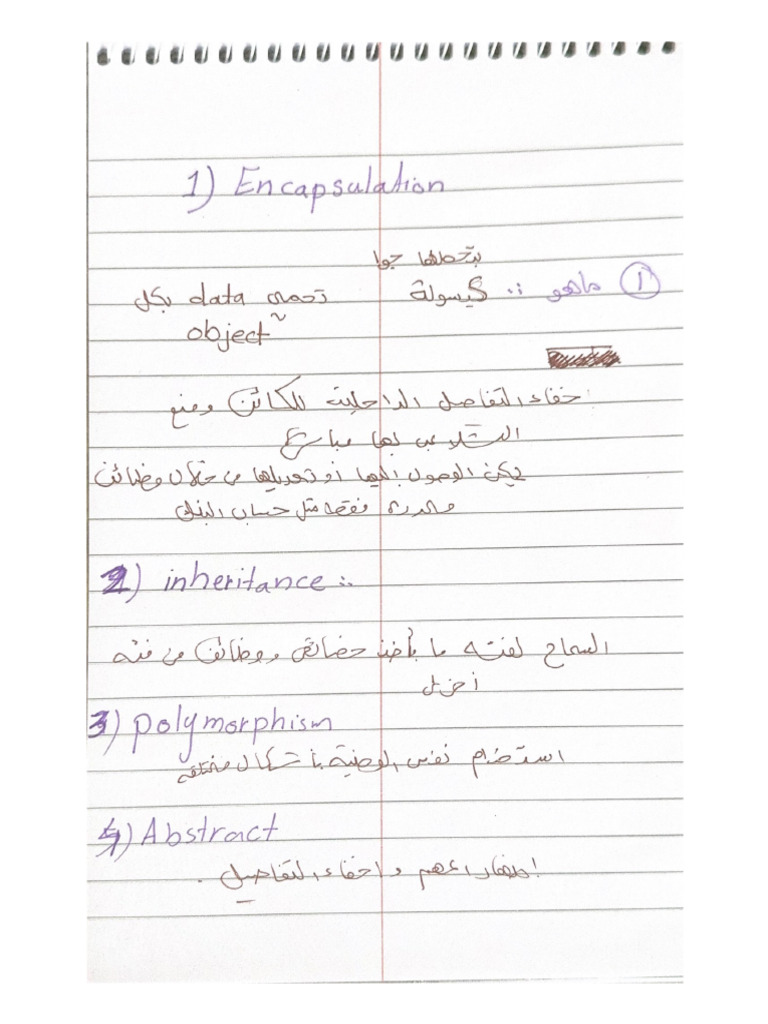 1) Encapsulation
بتحطها جوا
① ماهو :. كبسولة تحمي data بكل
object
خفاء التفاصيل الداخلية للكائن ومنع
التلاعب بها مباشرة
يمكن الوصول إليها أو تعديلها من خلال وظائف
محددة فقط مثل حساب البنك
2) inheritance :.
السماح لفئة ما بأخذ خصائص ووظائف من فئة
أخرى
3) polymorphism
استخدام نفس الوظيفة بأشكال مختلفة
4) Abstract
إظهار المهم و اخفاء التفاصيل .